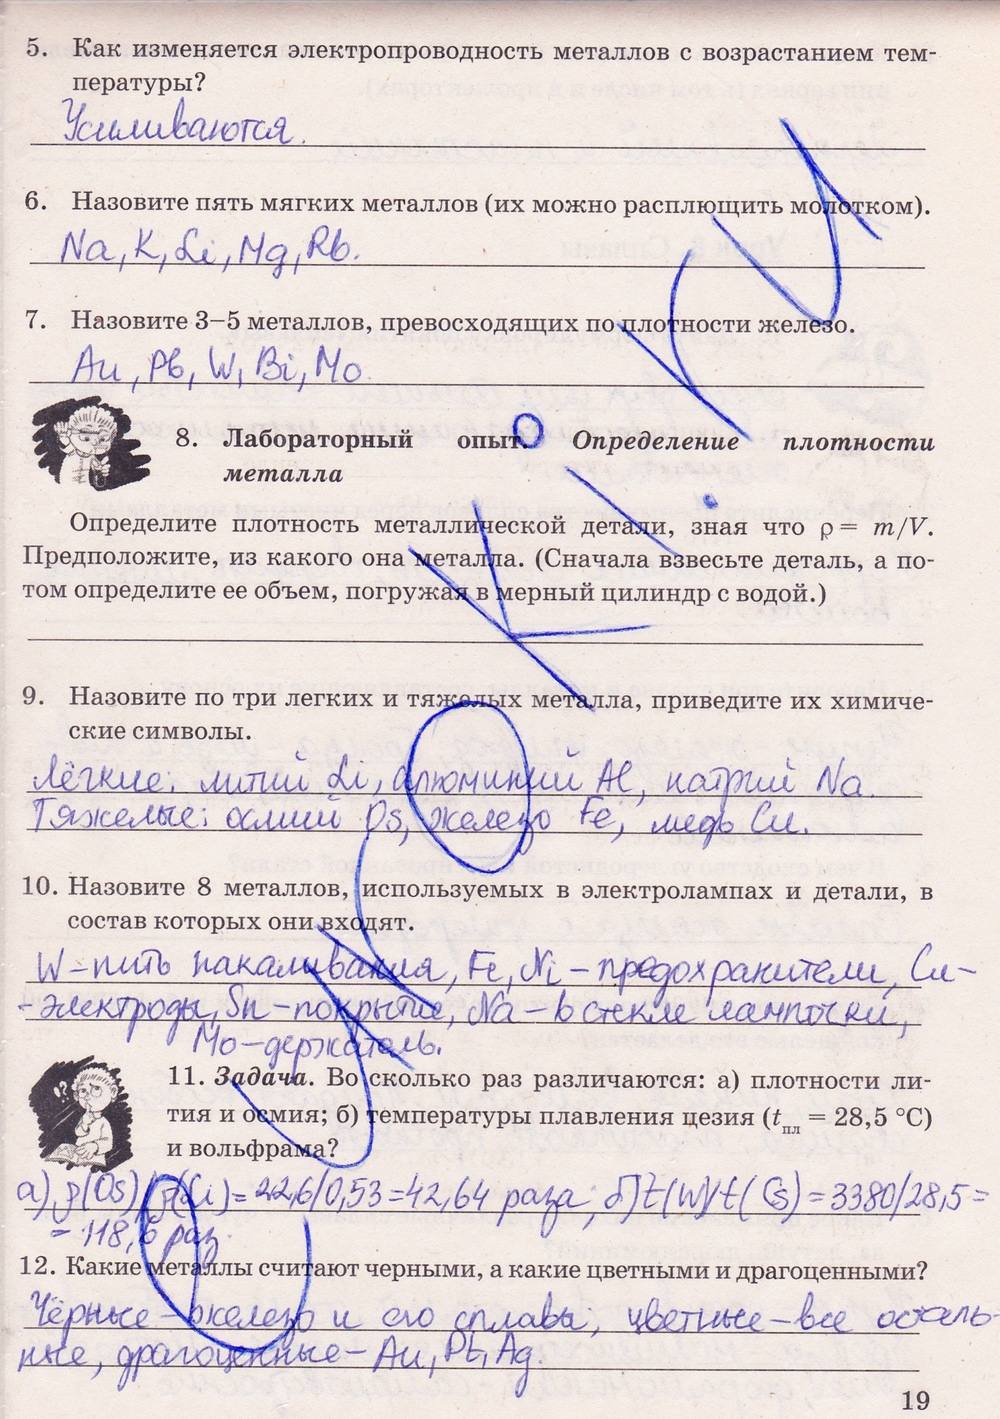 5. Как изменяется электропроводность металлов с возрастанием тем-
пературы?
Усиливаются.
6. Назовите пять мягких металлов (их можно расплющить молотком).
Na, K, Li, Mg, Rb.
7. Назовите 3–5 металлов, превосходящих по плотности железо.
Au, Pb, W, Bi, Mo
8. Лабораторный опыт. Определение плотности
металла
Определите плотность металлической детали, зная что ρ = m/V.
Предположите, из какого она металла. (Сначала взвесьте деталь, а по-
том определите ее объем, погружая в мерный цилиндр с водой.)
9. Назовите по три легких и тяжелых металла, приведите их химиче-
ские символы.
Лёгкие: литий Li, алюминий Al, натрий Na.
Тяжелые: осмий Os, железо Fe, медь Cu.
10. Назовите 8 металлов, используемых в электролампах и детали, в
состав которых они входят.
W – нить накаливания, Fe, Ni – предохранители, Cu –
- электроды, Sn – покрытие, Na – в стекле лампочки,
Mo – держатель.
11. Задача. Во сколько раз различаются: а) плотности ли-
тия и осмия; б) температуры плавления цезия (tпл = 28,5 °C)
и вольфрама?
а) ρ(Os)/ρ(Li) = 22,6/0,53 = 42,64 раза; б) t(W)/t(Cs) = 3380/28,5 =
= 118,6 раз.
12. Какие металлы считают черными, а какие цветными и драгоценными?
Чёрные – железо и его сплавы, цветные – все осталь-
ные, драгоценные – Au, Pt, Ag.
19